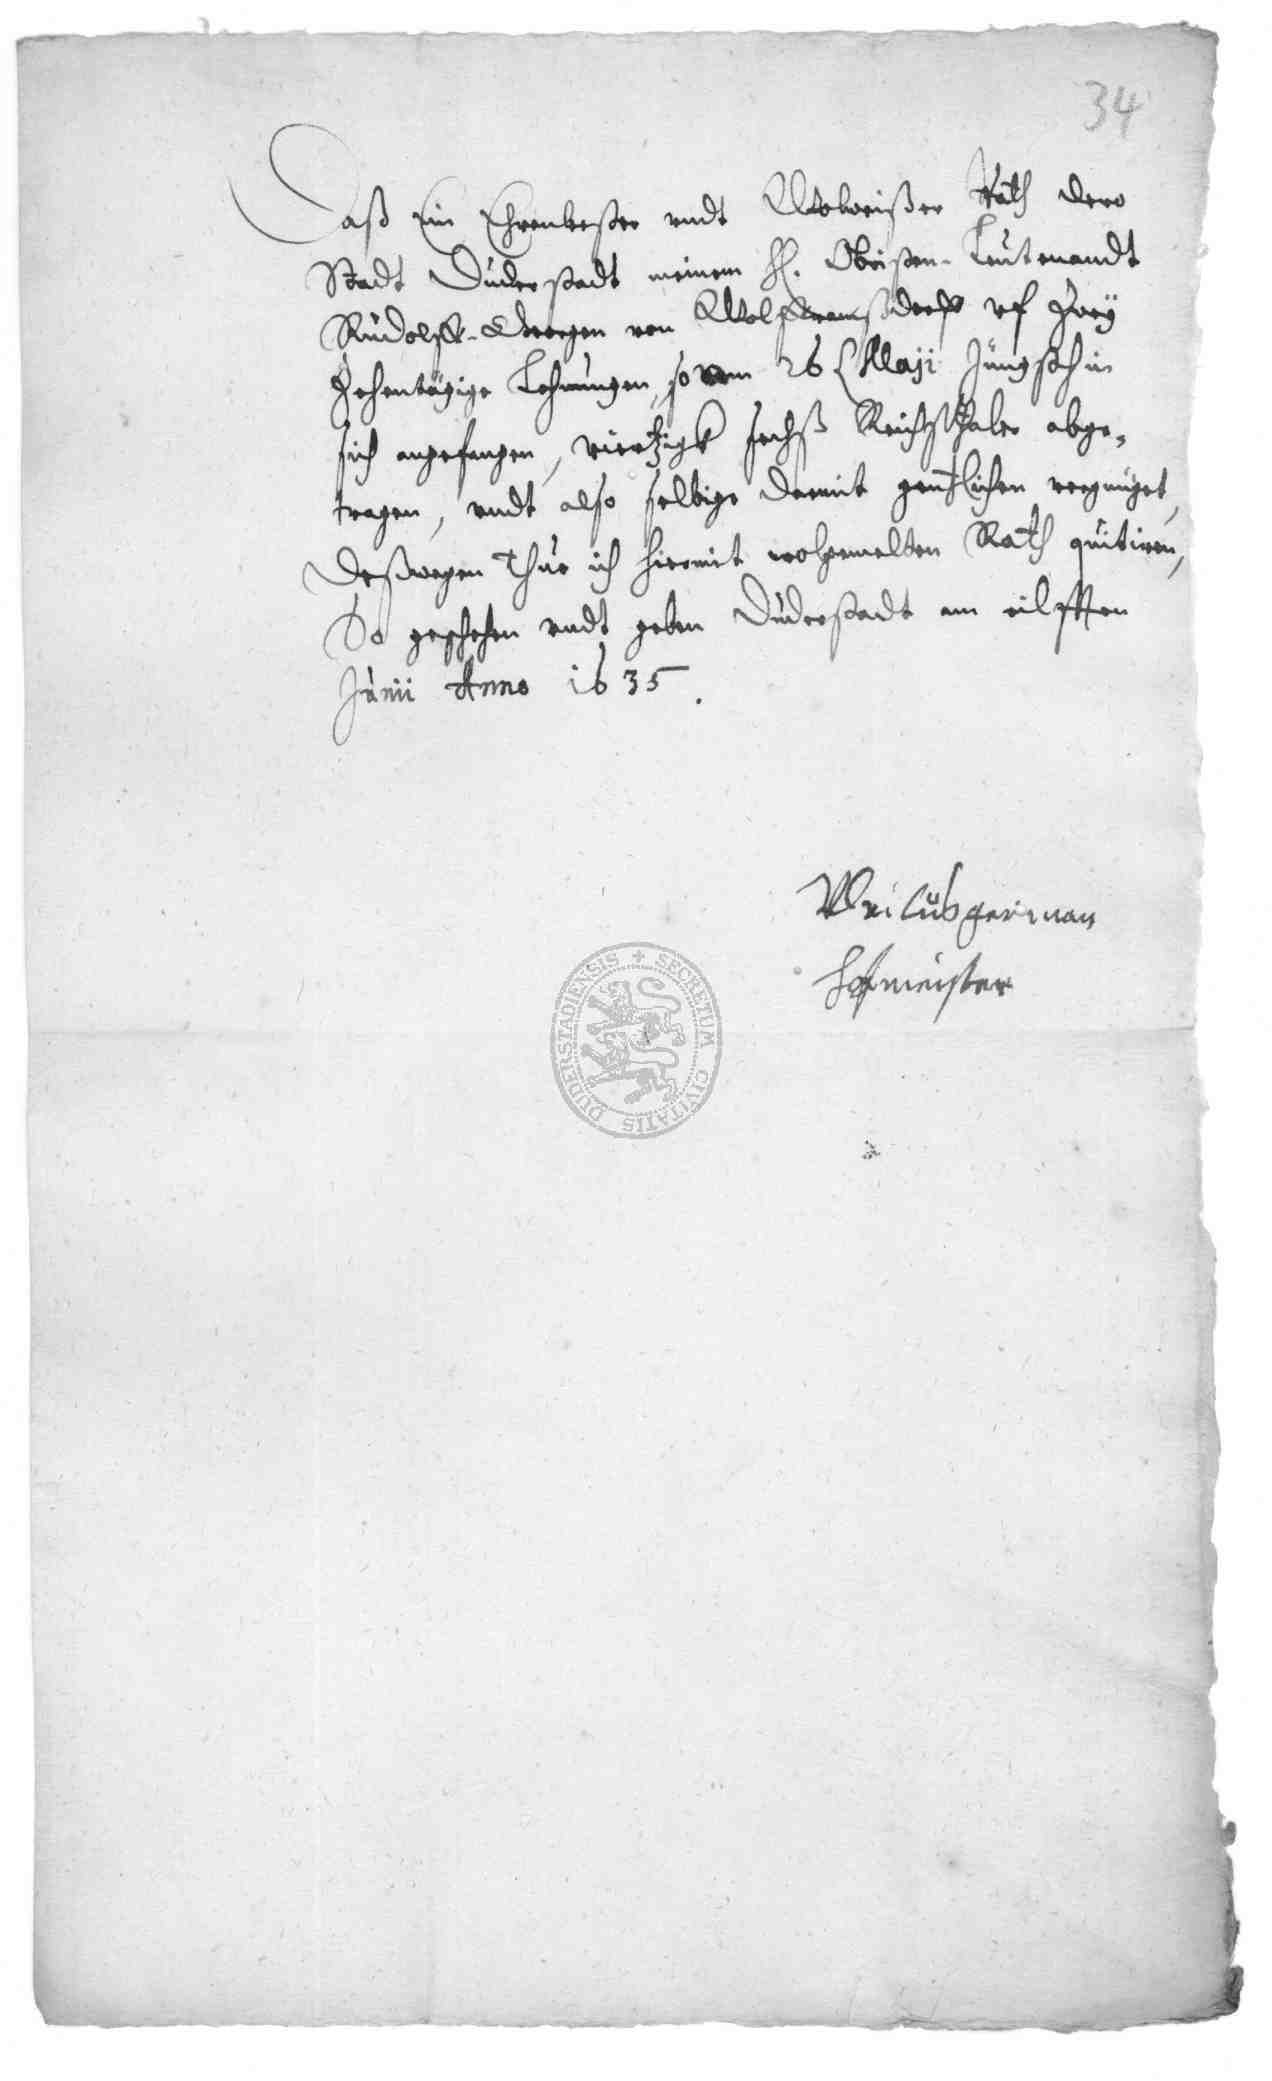 34
Daß Ein Ehrenvester undt Wolweißer Rath dero
Stadt Duderstadt meinem H. Obristen-Leutenandt
Rudolff-Georgen von Wolfframßdorff uf Zwey
Zehentägige Lehnungen, so vom 26 Maji Jüngsthin
sich angefangen, viertzigk sechß Reichsthaler abge-
tragen, undt also selbige damit gentzlichen vergnüget,
Deßwegen Thue ich hiermit wolgemelten Rath quitiren,
So geschehen undt geben Duderstadt am eilfften
Junii Anno 1635.
Hofmeister
SECRETUM CIVITATIS DUDERSTADIENSIS